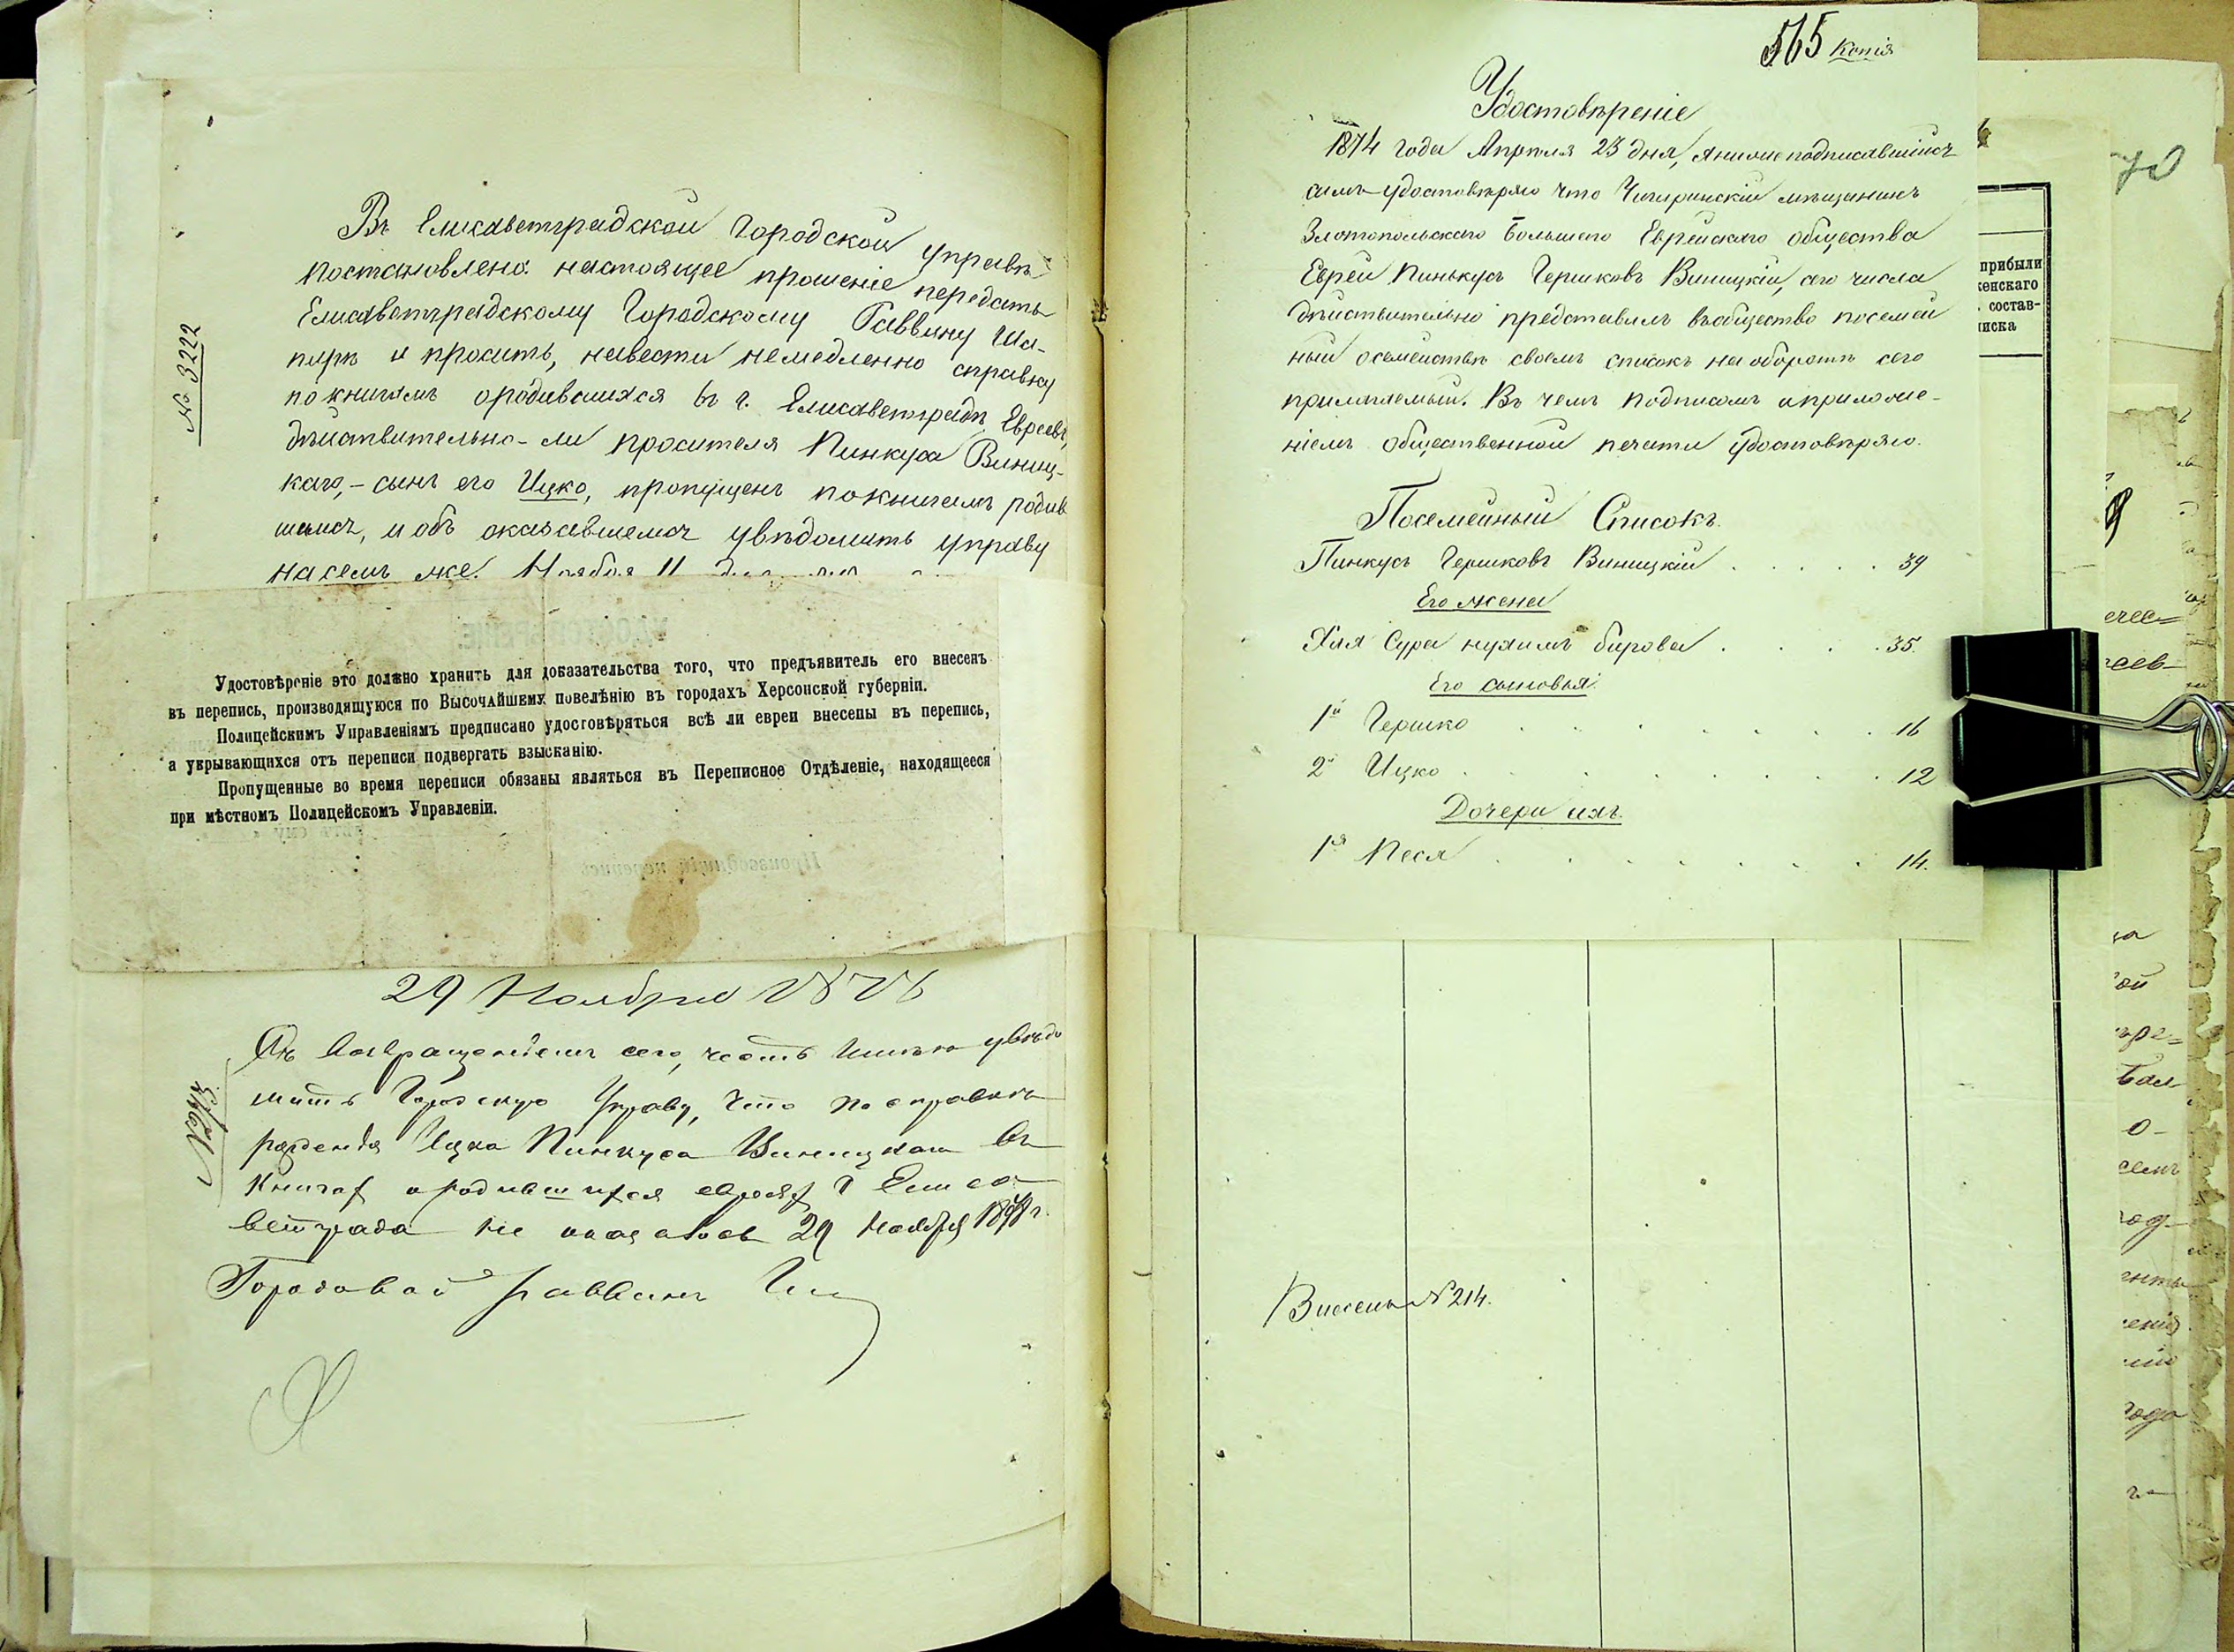 № 3222
Въ Елисаветградской Городской управѣ
постановлено: настоящее прошеніе передать
Елисаветградскому Городскому Раввину Ша-
пирѣ и просить, навести немедленно справку
по книгамъ о родившихся въ г. Елисаветградѣ Евреевъ,
дѣйствительно-ли просителя Пинкуса Виниц-
каго,- сынъ его Ицко, пропущенъ по книгамъ родив
шимся, и объ оказавшемся увѣдомить управу
на семъ же. Ноября 11
Удостовѣреніе это должно хранить для доказательства того, что предъявитель его внесенъ
въ перепись, производящуюся по Высочайшему повелѣнію въ городахъ Херсонской губерніи.
Полицейскимъ Управленіямъ предписано удостовѣряться всѣ ли евреи внесены въ перепись,
а укрывающихся отъ переписи подвергать взысканію.
Пропущенные во время переписи обязаны являться въ Переписное Отдѣленіе, находящееся
при мѣстномъ Полицейскомъ Управленіи.
29 Ноября 1876
Съ возвращеніемъ сего, честь имѣю увѣдо
мить Городскую Управу, что по справкѣ
рожденія Ицка Пинкуса Виницкаго въ
книгах о родившихся евреях г Елиса
ветграда не оказалось 29 Ноября
Городовой раввинъ
565 Копія
Удостовѣреніе
1874 года Апрѣля 23 дня, я нижеподписавшійся
симъ удостовѣряю что Чигиринскій мѣщанинъ
Златопольскаго Большего Еврейскаго общества
Еврей Пинькусъ Гершковъ Виницкій, сего числа
дѣйствительно представилъ въ общество посемей
ный о семействѣ своемъ списокъ на оборотѣ сего
прилагаемый. Въ чемъ подписомъ и приложе-
ніемъ общественной печати удостовѣряю.
Посемейный Списокъ.
Пинкусъ Гершковъ Виницкій . . . . . 39
Его жена
Хая Сура . . . . 35.
Его сыновья.
1й Гершко . . . . . . . 16
2й Ицко . . . . . . . 12
Дочери ихъ.
1я Песя . . . . . . . 14.
прибыли
женскаго
состав-
иска
Внесенъ № 214.
70